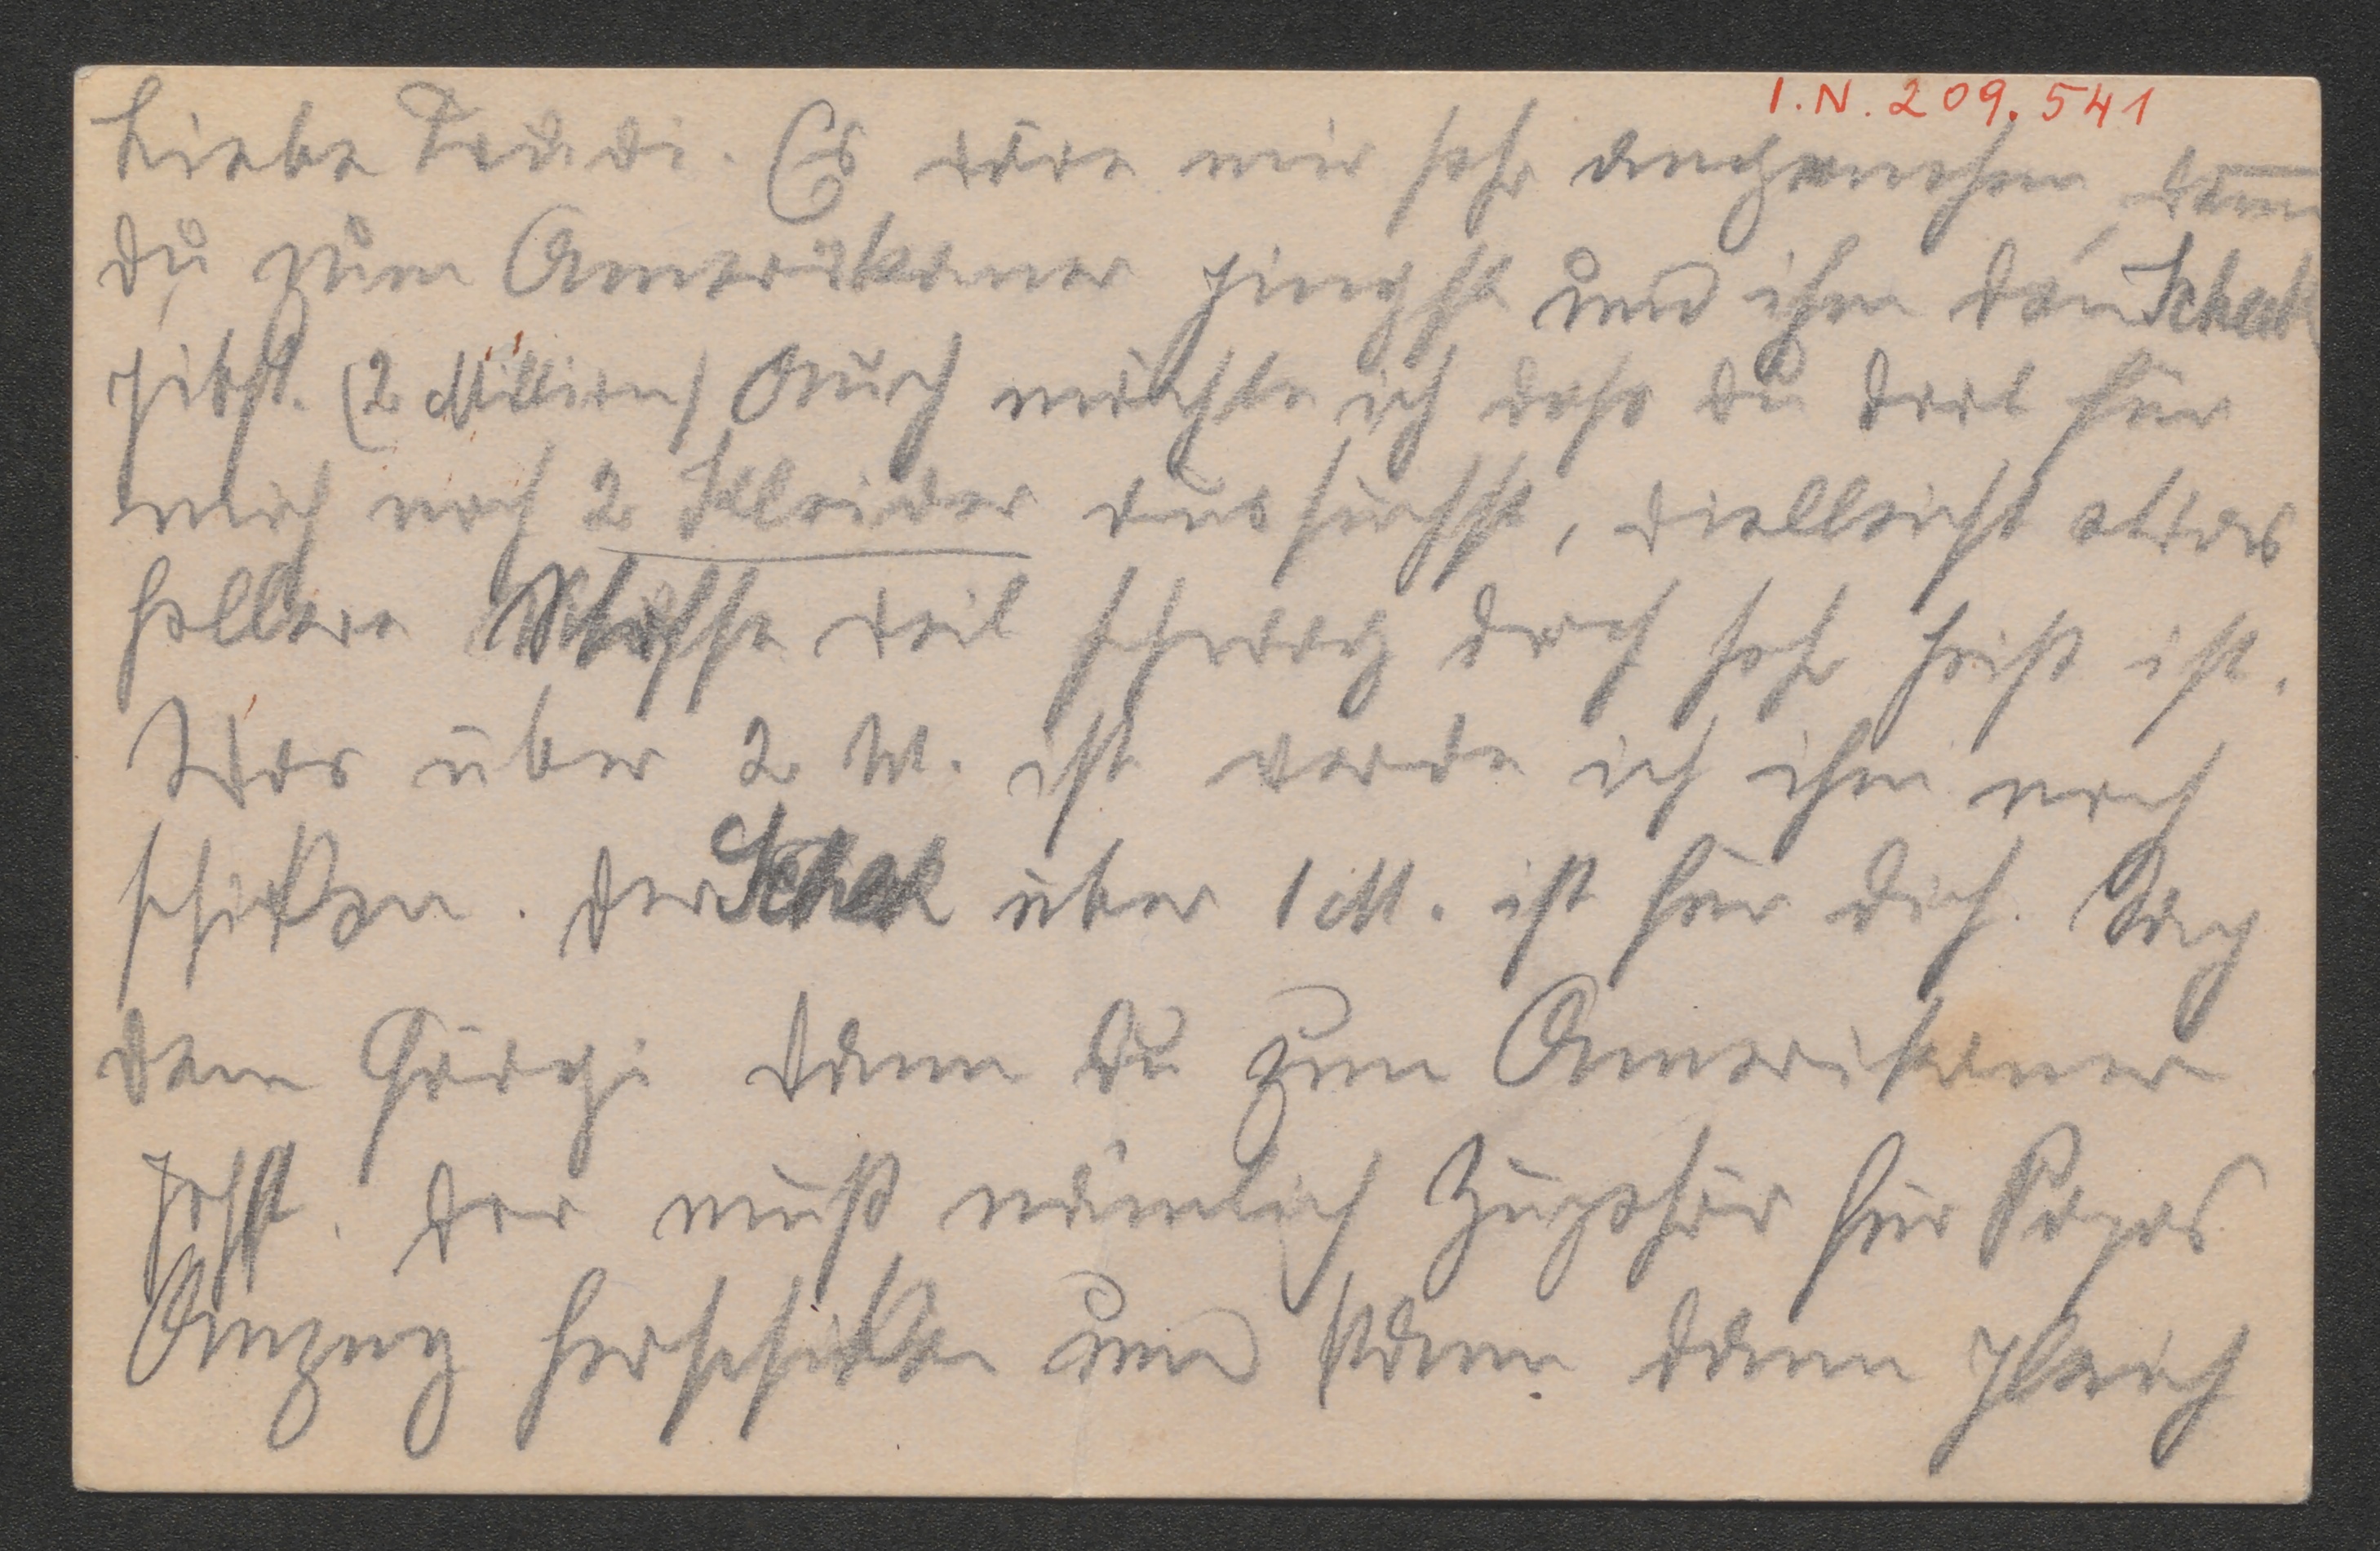 I.N. 209.541
Liebe Trudi. Es wäre mir sehr angenehm, wenn
du zum Amerikaner gingst und ihm den Scheck
gibst. (2 Million) Auch möchte ich dass du dort für
mich noch 2 Kleider aussuchst, vielleicht etwas
hellere Stoffe weil schwarz doch sehr heiß ist.
Was über 2 M. ist werde ich ihm noch
schicken. Der Scheck über 1 M. ist für dich. Sag
dem Görgi wann du zum Amerikaner
gehst. Der muß nämlich Zugehör für Papas
Anzug herschicken und kann dann gleich